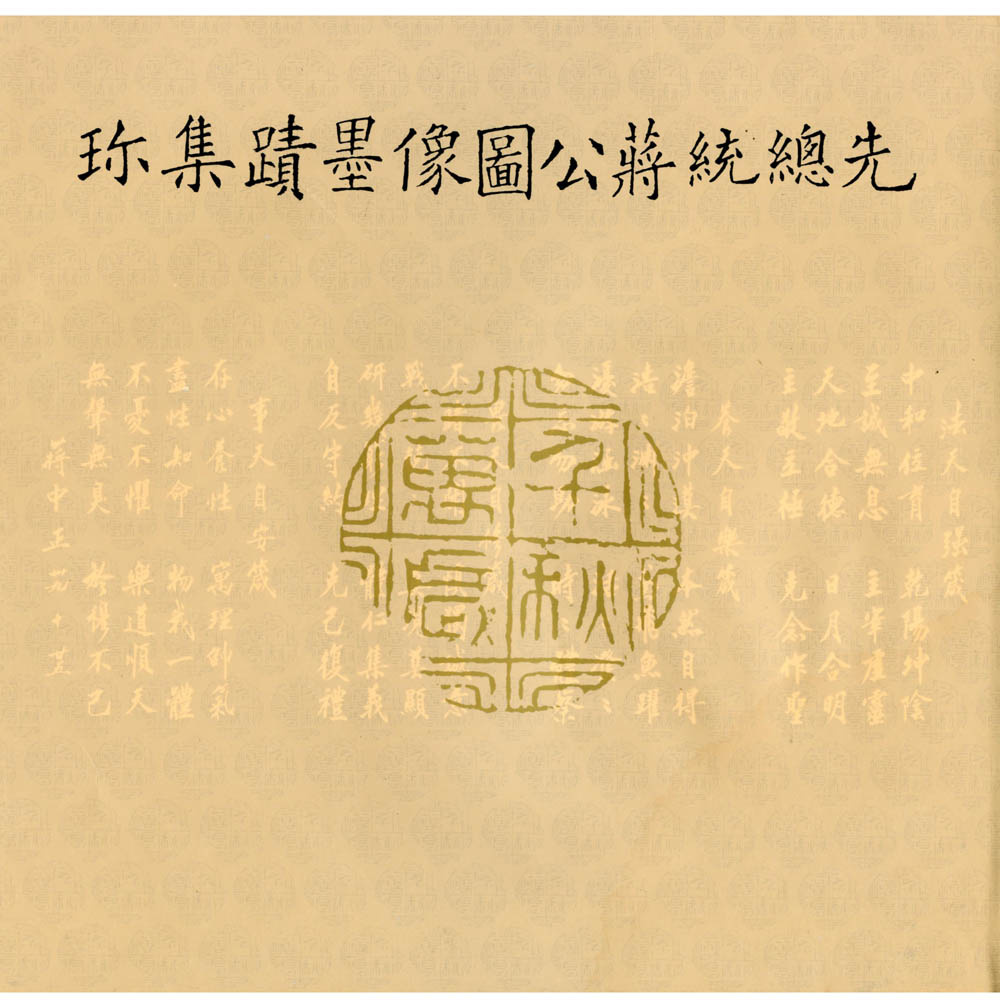 先總統蔣公圖像墨蹟集珎
法天自強箴
中和位育 乾陽坤陰
至誠無息 主宰虛靈
天地合德 日月合明
主敬立極 克念作聖
養天自樂箴
澹泊沖漠 本然自得
浩浩淵淵 鳶飛魚躍
自反守約 克己復禮
事天自安箴
存心養性 寓理帥氣
盡性知命 物我一體
不憂不懼 樂道順天
無聲無臭 於穆不已
蔣中正
千秋萬歲